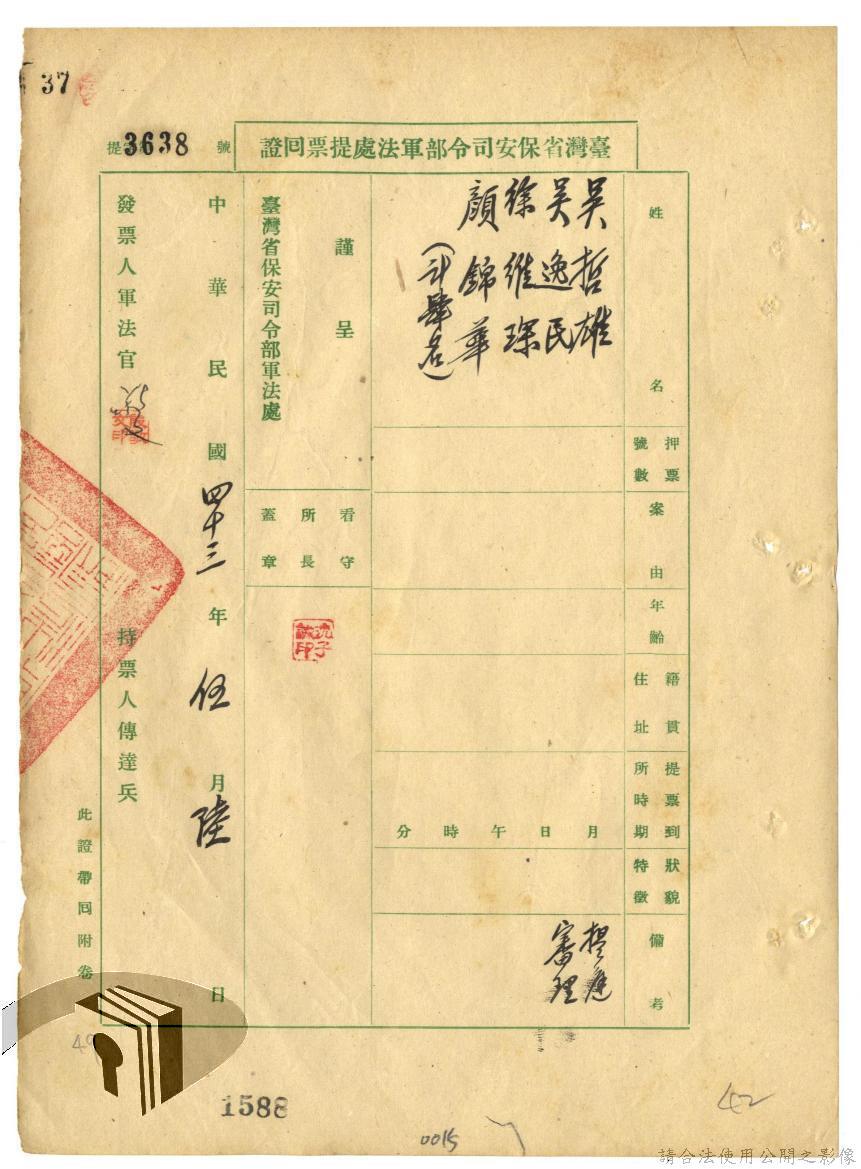 37
提字第3638號
臺灣省保安司令部軍法處提票回證
姓名
吳哲雄
吳逸民
徐維琛
顏錦華
(計肆名)
押票號數
案由
年齡
籍貫住址
提票到所時期
月日午時分
狀貌特徵
備考
提庭
審理
謹呈
臺灣省保安司令部軍法處
看守所長蓋章
中華民國四十三年伍月陸日
發票人軍法官
持票人傳達兵
此證帶回附卷
49
1588
0015
42
請合法使用公開之影像